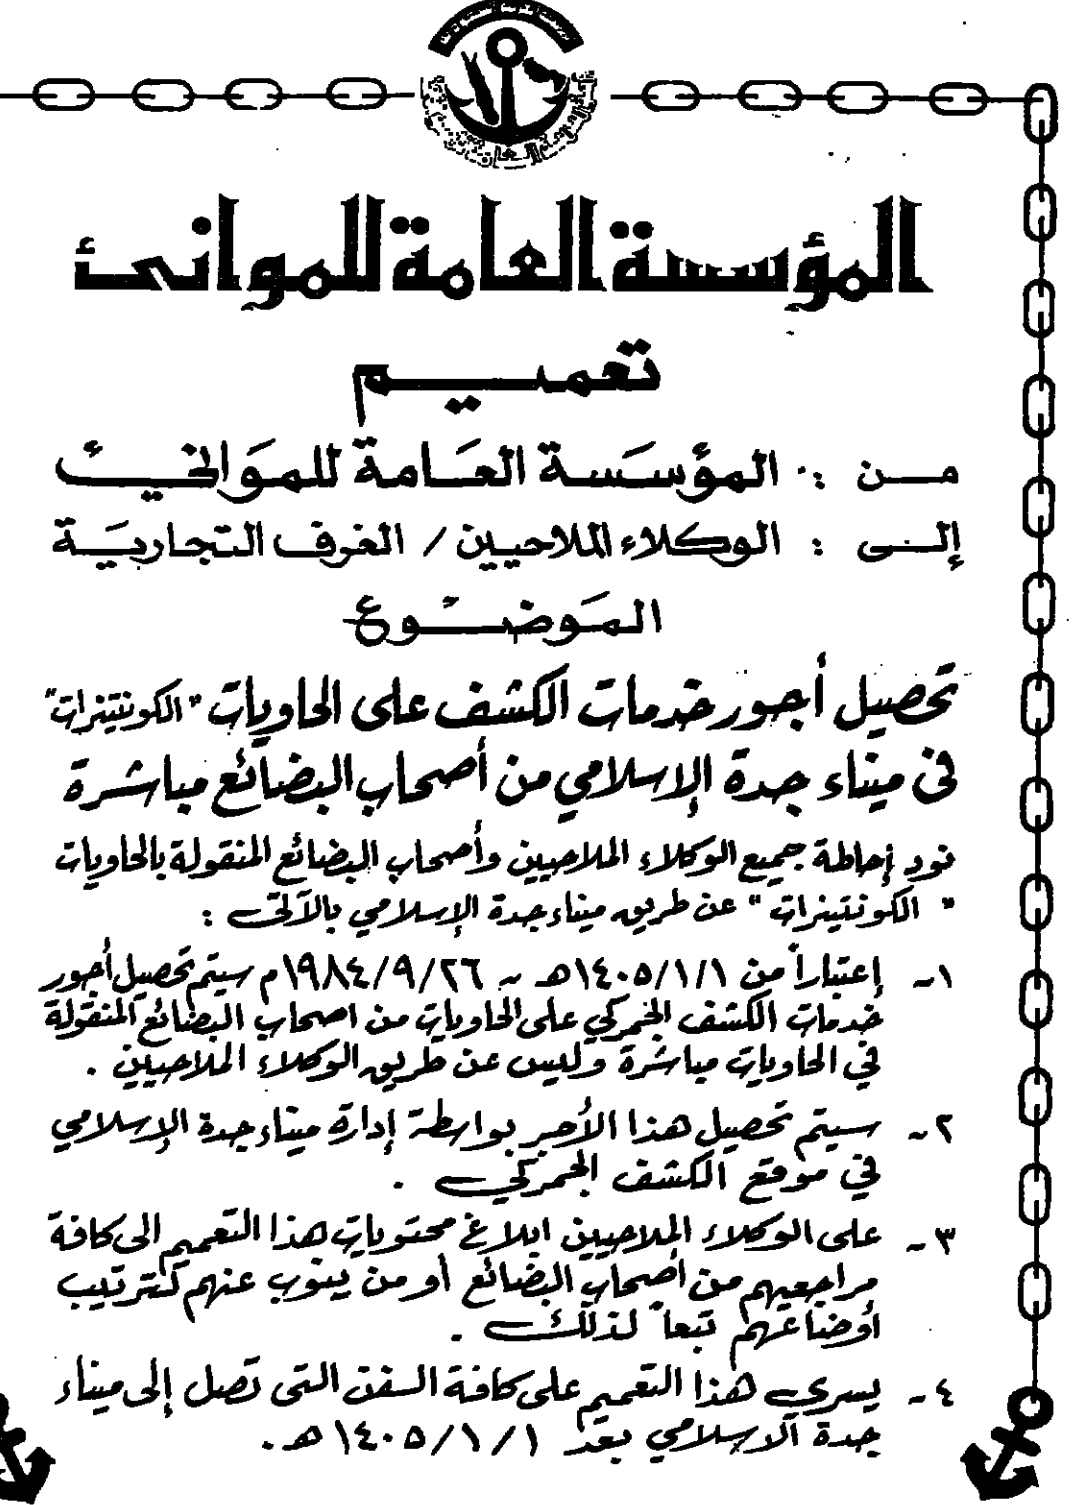 المؤسسة العامة للموانئ
تعميم
من : المؤسسة العامة للموانئ
إلى : الوكلاء الملاحيين / الغرف التجارية
الموضوع
تحصيل أجور خدمات الكشف على الحاويات "الكونتنيزات"
في ميناء جدة الإسلامي من أصحاب البضائع مباشرة
نود إحاطة جميع الوكلاء الملاحيين وأصحاب البضائع المنقولة بالحاويات
" الكونتينرات " عن طريق ميناء جدة الإسلامي بالآتي :
١- إعتباراً من ١٤٠٥/١/١هـ ـ ١٩٨٤/٩/٢٦م سيتم تحصيل أجور
خدمات الكشف الجمركي على الحاويات من اصحاب البضائع المنقولة
في الحاويات مباشرة وليس عن طريق الوكلاء الملاحيين .
٢- سيتم تحصيل هذا الأجر بواسطة إدارة ميناء جدة الإسلامي
في موقع الكشف الجمركي .
٣- على الوكلاء الملاحيين ابلاغ محتويات هذا التعميم الى كافة
مراجعيهم من أصحاب البضائع أو من ينوب عنهم لترتيب
أوضاعهم تبعاً لذلك .
٤- يسري هذا التعميم على كافة السفن التي تصل إلى ميناء
جدة الاسلامي بعد ١٤٠٥/١/١هـ .